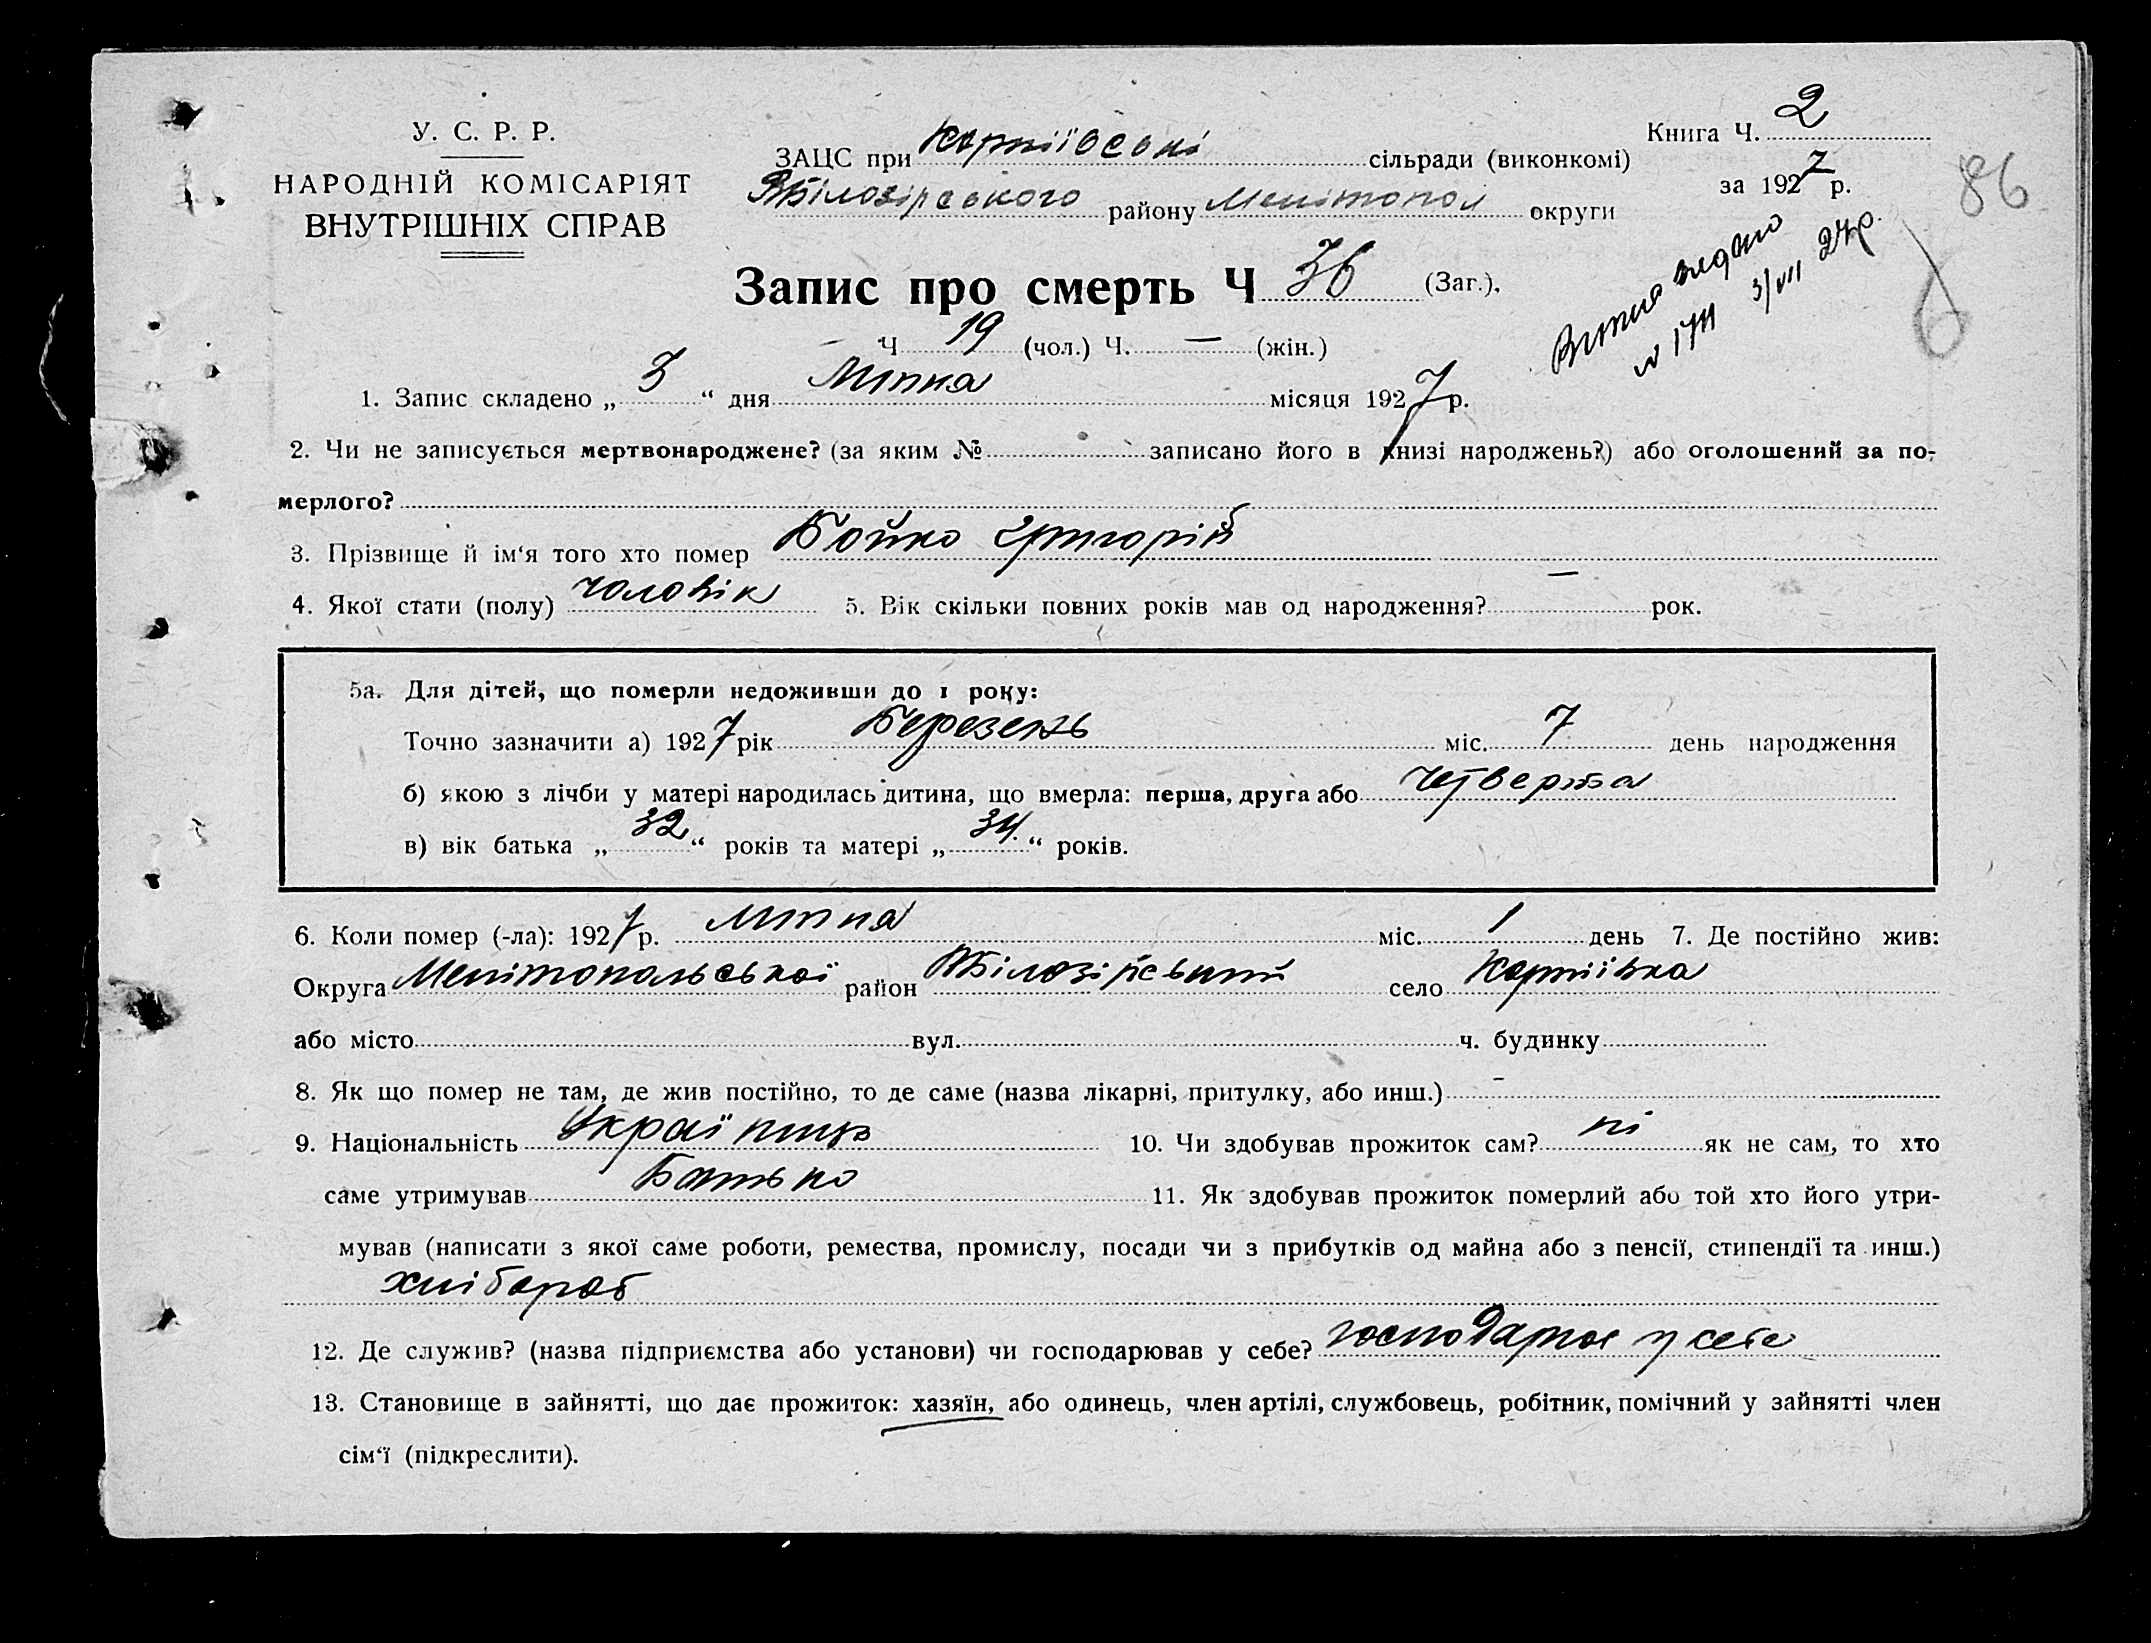 У. С. Р. Р.
НАРОДНІЙ КОМІСАРІЯТ
ВНУТРІШНІХ СПРАВ
Книга Ч. 2
за 1927 р.
86
ЗАЦС при Корніївські сільради (виконкомі)
В Білозірського району Мелітопол округи
Запис про смерть Ч 36 (Заг.).
Витяг видано
3/VII 27р.
Ч 19 (чол.) Ч. — (жін.)
1. Запис складено „ 3 “ дня Липня місяця 1927 р.
2. Чи не записується мертвонароджене? (за яким № записано його в книзі народжень?) або оголошений за по-
мерлого?
3. Прізвище й ім‘я того хто помер Бойко Григорій
4. Якої стати (полу) чоловік 5. Вік скільки повних років мав од народження? — рок.
5а. Для дітей, що померли недоживши до 1 року:
Точно зазначити а) 1927 рік Березень міс. 7 день народження
б) якою з лічби у матері народилась дитина, що вмерла: перша, друга або четверта
в) вік батька „ 32 “ років та матері „ 34 “ років.
6. Коли помер (-ла): 1927 р. Липня міс. 1 день 7. Де постійно жив:
Округа Мелітопольської район В Білозірський село Корніївка
або місто вул. ч. будинку
8. Як що помер не там, де жив постійно, то де саме (назва лікарні, притулку, або инш.) —
9. Національність Українець 10. Чи здобував прожиток сам? ні як не сам, то хто
саме утримував Батько 11. Як здобував прожиток померлий або той хто його утри-
мував (написати з якої саме роботи, ремества, промислу, посади чи з прибутків од майна або з пенсії, стипендії та инш.)
хлібороб
12. Де служив? (назва підприємства або установи) чи господарював у себе? господарює у себе
13. Становище в зайнятті, що дає прожиток: хазяїн, або одинець, член артілі, службовець, робітник, помічний у зайнятті член
сім‘ї (підкреслити).